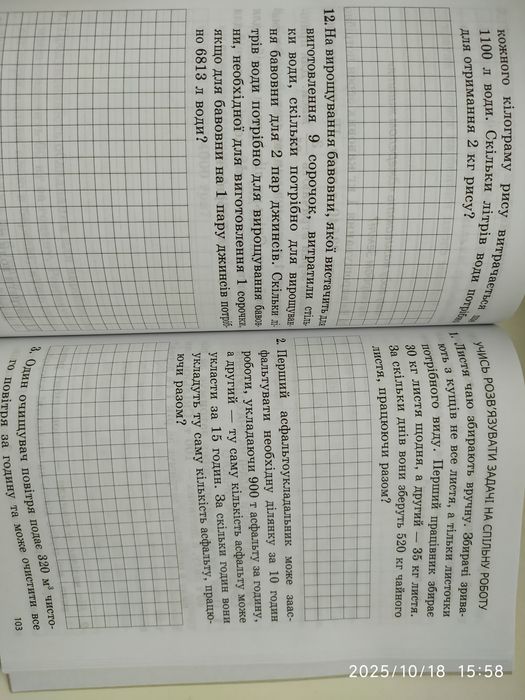 кожного кілограму рису витрачається
1100 л води. Скільки літрів води потріб
для отримання 2 кг рису?
12. На вирощування бавовни, якої вистачить для
виготовлення 9 сорочок, витратили стіль-
ки води, скільки потрібно для вирощуван
ня бавовни для 2 пар джинсів. Скільки лі-
трів води потрібно для вирощування бавов
ни, необхідної для виготовлення 1 сорочки,
якщо для бавовни на 1 пару джинсів потріб-
но 6813 л води?
УЧИСЬ РОЗВ'ЯЗУВАТИ ЗАДАЧІ НА СПІЛЬНУ РОБОТУ
1. Листя чаю збирають вручну. Збирачі зрива-
ють з кущів не все листя, а тільки листочки
потрібного виду. Перший працівник збирає
30 кг листя щодня, а другий — 35 кг листя.
За скільки днів вони зберуть 520 кг чайного
листя, працюючи разом?
2. Перший асфальтоукладальник може заас-
фальтувати необхідну ділянку за 10 годин
роботи, укладаючи 900 т асфальту за годину,
а другий — ту саму кількість асфальту може
укласти за 15 годин. За скільки годин вони
укладуть ту саму кількість асфальту, працю-
ючи разом?
3. Один очищувач повітря подає 320 м³ чисто-
го повітря за годину та може очистити все
103
2025/10/18 15:58